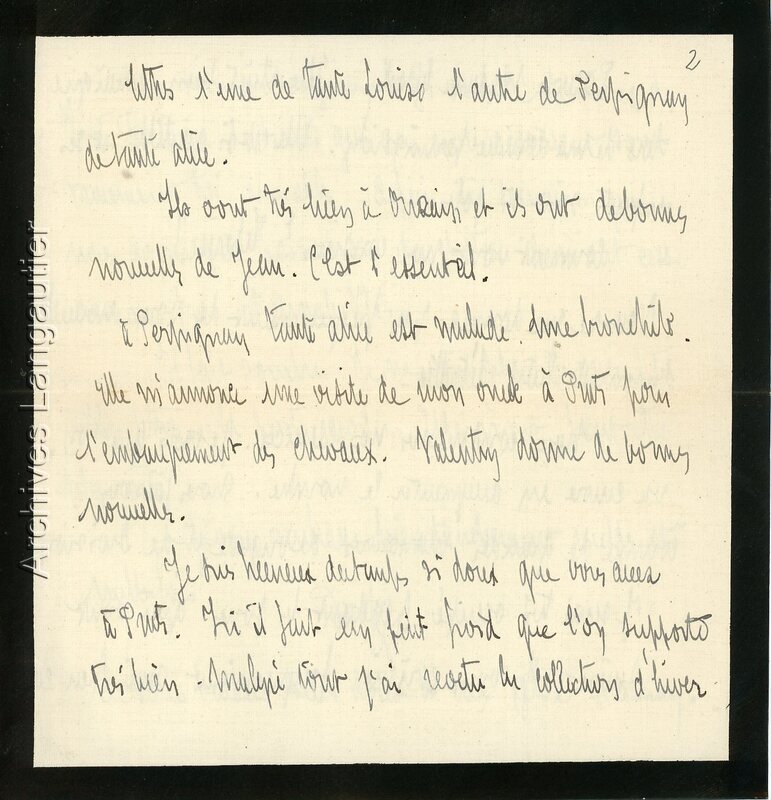 2
lettres l'une de tante Louise l'autre de Perpignan
de tante alice.
Ils vont très bien à et ils ont de bonnes
nouvelles de Jean. C'est l'essentiel.
à Perpignan tante alice est malade. Une bronchite.
Elle m'annonce une visite de mon oncle à Prats pour
l'embarquement des chevaux. Valentin donne de bonnes
nouvelles.
Je suis heureux du temps si doux que vous avez
à Prats. Ici il fait un petit froid que l'on supporte
très bien - malgré tout j'ai revetu les collections d'hiver
Archives Langautier